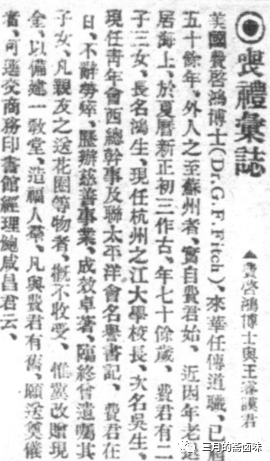 ◉喪禮彙誌
▲費啓鴻博士與王
美國費啓鴻博士(Dr. G. F. Fitch)、來華任傳道職、已屆
五十餘年、外人之至蘇州者、實自費君始、近因年老
居海上、於夏曆新正初三作古、年七十餘歲、費君有二
子三女、長名鴻生、現任杭州之江大學校長、次名吳生、
現任靑年會西總幹事及聯太平洋會名譽書記、費君在
日、不辭勞瘁、歷辦慈善事業、成效卓著、臨終曾遺囑其
子女、凡親友之送花圈等物者、槪不收受、惟冀改贈現
金、以備建一敎堂、造福人羣、凡與費君有舊、願送奠儀
者、可遞交商務印書館經理鮑咸昌君云、
三月的斋卤味